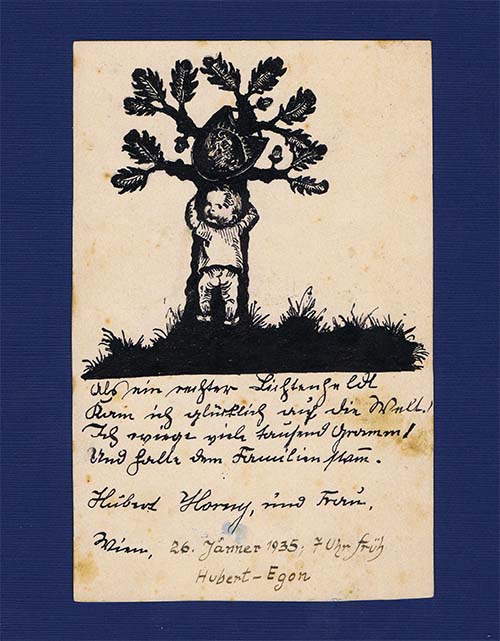 Als ein rechter Lichtenheldt
Kam ich glücklich auf die Welt!
Ich wiege viele tausend Gramm!
Und halte dem Familienstam̄.
Hubert Horny, und Frau,
Wien, 26. Jänner 1935; 7 Uhr früh
Hubert-Egon